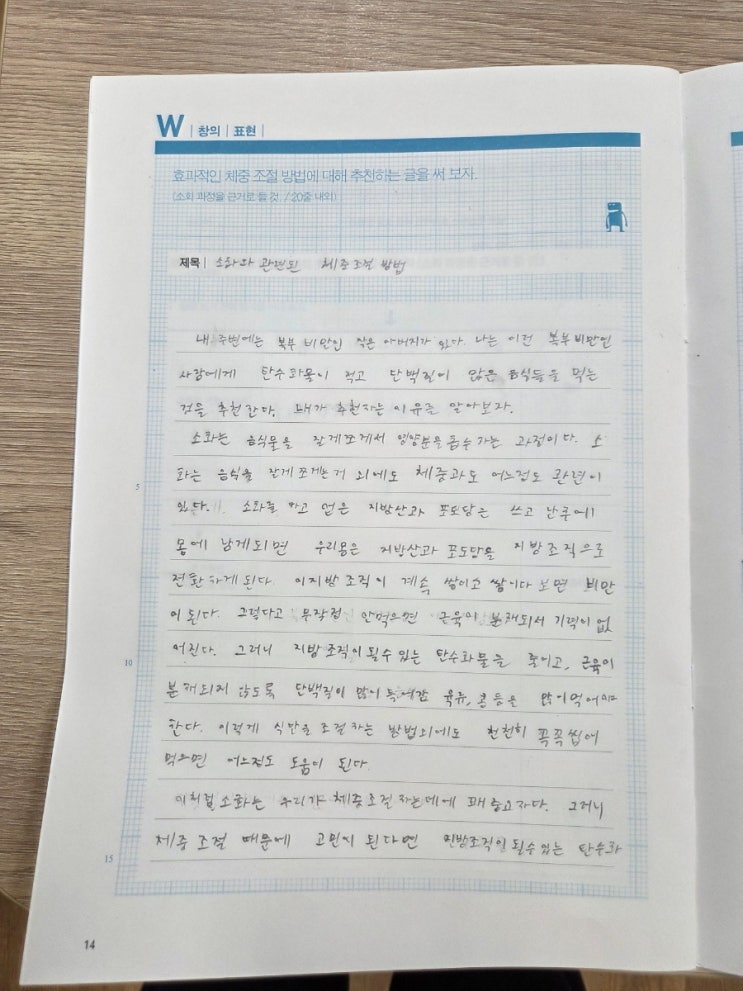 W | 창의 | 표현 |
효과적인 체중 조절 방법에 대해 추천하는 글을 써 보자.
(소화 과정을 근거로 들 것. / 20줄 내외)
제목 | 소화와 관련된 체중조절 방법
내 주변에는 복부 비만인 작은 아버지가 있다. 나는 이런 복부비만인
사람에게 탄수화물이 적고 단백질이 많은 음식들을 먹는
것을 추천한다. 내가 추천하는 이유를 알아보자.
소화는 음식물을 잘게쪼게서 영양분을 흡수하는 과정이다. 소
화는 음식을 잘게 쪼게는거 외에도 체중과도 어느정도 관련이
있다. 소화를 하고 얻은 지방산과 포도당은 쓰고 난후에
몸에 남게되면 우리몸은 지방산과 포도당을 지방조직으로
전환하게 된다. 이지방조직이 계속 쌓이고 쌓이다 보면 비만
이 된다. 그렇다고 무작정 안먹으면 근육이 분해되서 기력이 없
어진다. 그러니 지방조직이 될수있는 탄수화물을 줄이고, 근육이
분해되지 않도록 단백질이 많이 육류, 콩등을 많이먹어야
한다. 이렇게 식단을 조절하는 방법외에도 천천히 꼭꼭씹어
먹으면 어느정도 도움이 된다.
이처럼 소화는 우리가 체중조절하는데에 꽤 중요하다. 그러니
체중조절 때문에 고민이 된다면 지방조직이 될수있는 탄수화
5
10
15
14